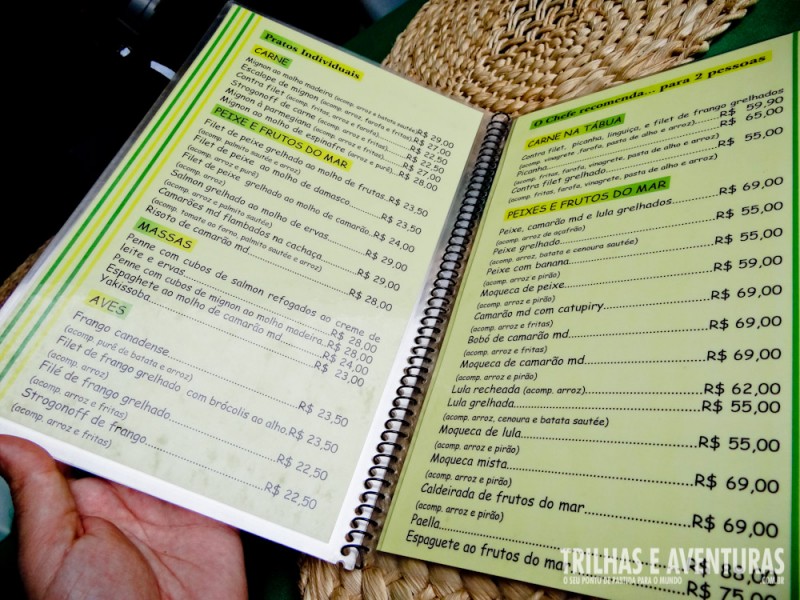 Pratos Individuais
CARNE
Mignon ao molho madeira (acomp. arroz e batata sautée) R$ 29,00
Escalope de mignon (acomp. arroz, farofa e fritas) R$ 27,00
Contra filet (acomp. fritas, arroz e farofa) R$ 22,50
Strogonoff de carne (acomp. arroz e fritas) R$ 22,50
Mignon à parmegiana (acomp. arroz e fritas) R$ 27,00
Mignon ao molho de espinafre (arroz e purê) R$ 28,00
PEIXE E FRUTOS DO MAR
Filet de peixe grelhado ao molho de frutas R$ 23,50
(acomp. palmito sautée e arroz)
Filet de peixe ao molho de damasco R$ 23,50
(acomp. arroz e purê)
Filet de peixe grelhado ao molho de camarão R$ 24,00
(acomp. arroz e purê)
Salmon grelhado ao molho de ervas R$ 29,00
(acomp. arroz e palmito sautée)
Camarões md flambados na cachaça R$ 29,00
(acomp. tomate ao forno, palmito sautée e arroz)
Risoto de camarão md R$ 28,00
MASSAS
Penne com cubos de salmon refogados ao creme de
leite e ervas R$ 28,00
Penne com cubos de mignon ao molho madeira R$ 28,00
Espaghete ao molho de camarão md R$ 24,00
Yakissoba R$ 23,00
AVES
Frango canadense R$ 23,50
(acomp. purê de batata e arroz)
Filet de frango grelhado com brócolis ao alho R$ 23,50
(acomp. arroz)
Filé de frango grelhado R$ 22,50
(acomp. arroz e fritas)
Strogonoff de frango R$ 22,50
(acomp. arroz e fritas)
O Chefe recomenda... para 2 pessoas
CARNE NA TÁBUA
Contra filet, picanha, linguiça, e filet de frango grelhados
(acomp. vinagrete, farofa, pasta de alho e arroz) R$ 59,90
Picanha R$ 65,00
(acomp. fritas, farofa, vinagrete, pasta de alho e arroz)
Contra filet grelhado R$ 55,00
(acomp. fritas, farofa, vinagrete, pasta de alho e arroz)
PEIXES E FRUTOS DO MAR
Peixe, camarão md e lula grelhados R$ 69,00
(acomp. arroz de açafrão)
Peixe grelhado R$ 55,00
(acomp. arroz, batata e cenoura sautée)
Peixe com banana R$ 55,00
(acomp. arroz e pirão)
Moqueca de peixe R$ 59,00
(acomp. arroz e pirão)
Camarão md com catupiry R$ 69,00
(acomp. arroz e fritas)
Bobó de camarão md R$ 69,00
(acomp. arroz e fritas)
Moqueca de camarão md R$ 69,00
(acomp. arroz e pirão)
Lula recheada (acomp. arroz) R$ 62,00
Lula grelhada R$ 55,00
(acomp. arroz, cenoura e batata sautée)
Moqueca de lula R$ 55,00
(acomp. arroz e pirão)
Moqueca mista R$ 69,00
(acomp. arroz e pirão)
Caldeirada de frutos do mar R$ 69,00
(acomp. arroz e pirão)
Paella R$ 88,00
Espaguete ao frutos do mar R$ 75,00
TRILHAS E AVENTURAS
O SEU PONTO DE PARTIDA PARA O MUNDO .COM.BR